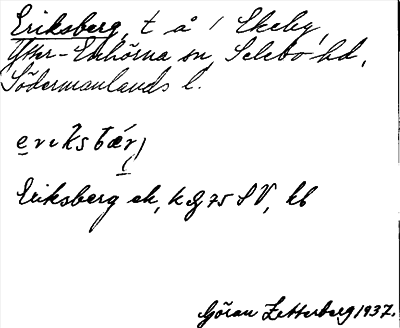 Eriksberg, t å 1 Ekeby,
Ytter-Enhörna sn, Selebo hd,
Södermanlands l.
Eriksberg ek, k G 75 SV, kb
Göran Zetterberg 1937.